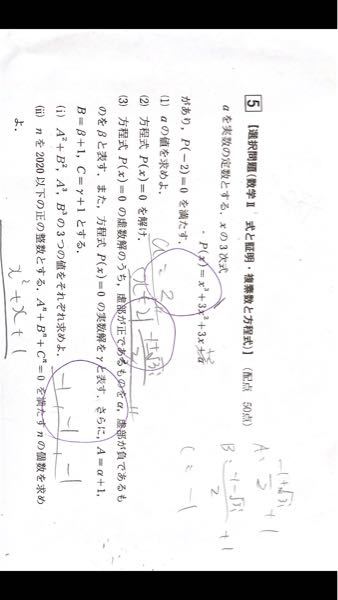 5 【選択問題(数学Ⅱ 式と証明・複素数と方程式)】 (配点 50点)
aを実数の定数とする．xの3次式
P(x)=x³+3x²+3x+a
があり，P(-2)=0 を満たす．
(1) aの値を求めよ．
(2) 方程式 P(x)=0 を解け．
(3) 方程式 P(x)=0 の虚数解のうち，虚部が正であるものをα，虚部が負であるも
のをβと表す．また，方程式 P(x)=0 の実数解をγと表す．さらに，A=α+1，
B=β+1，C=γ+1 とする．
(i) A²+B²，A³，B³の3つの値をそれぞれ求めよ．
(ii) nを2020以下の正の整数とする．Aⁿ+Bⁿ+Cⁿ=0 を満たすnの個数を求め
よ．
+2
a=2
-1±√3i
2
A=
-1+√3i
2
+1
B=
-1-√3i
2
+1
C=-1
-1
-1
x²+x+1